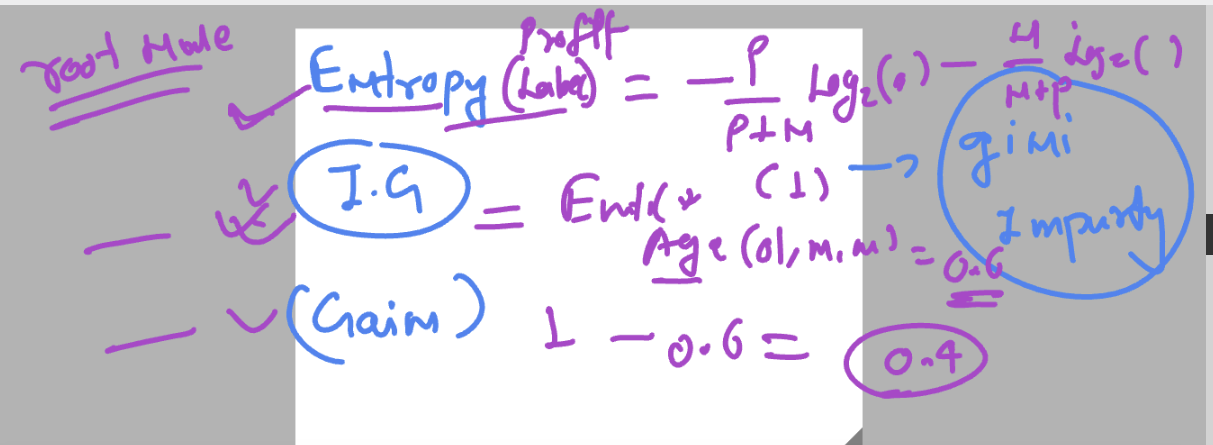 root Node
Profit
Entropy (Label) = - P/P+N Log2( ) - N/N+P Log2( )
I.G = Ent( * (1) → gini Impurity
Age (ol, m, n) = 0.6
(Gain) 1 - 0.6 = 0.4